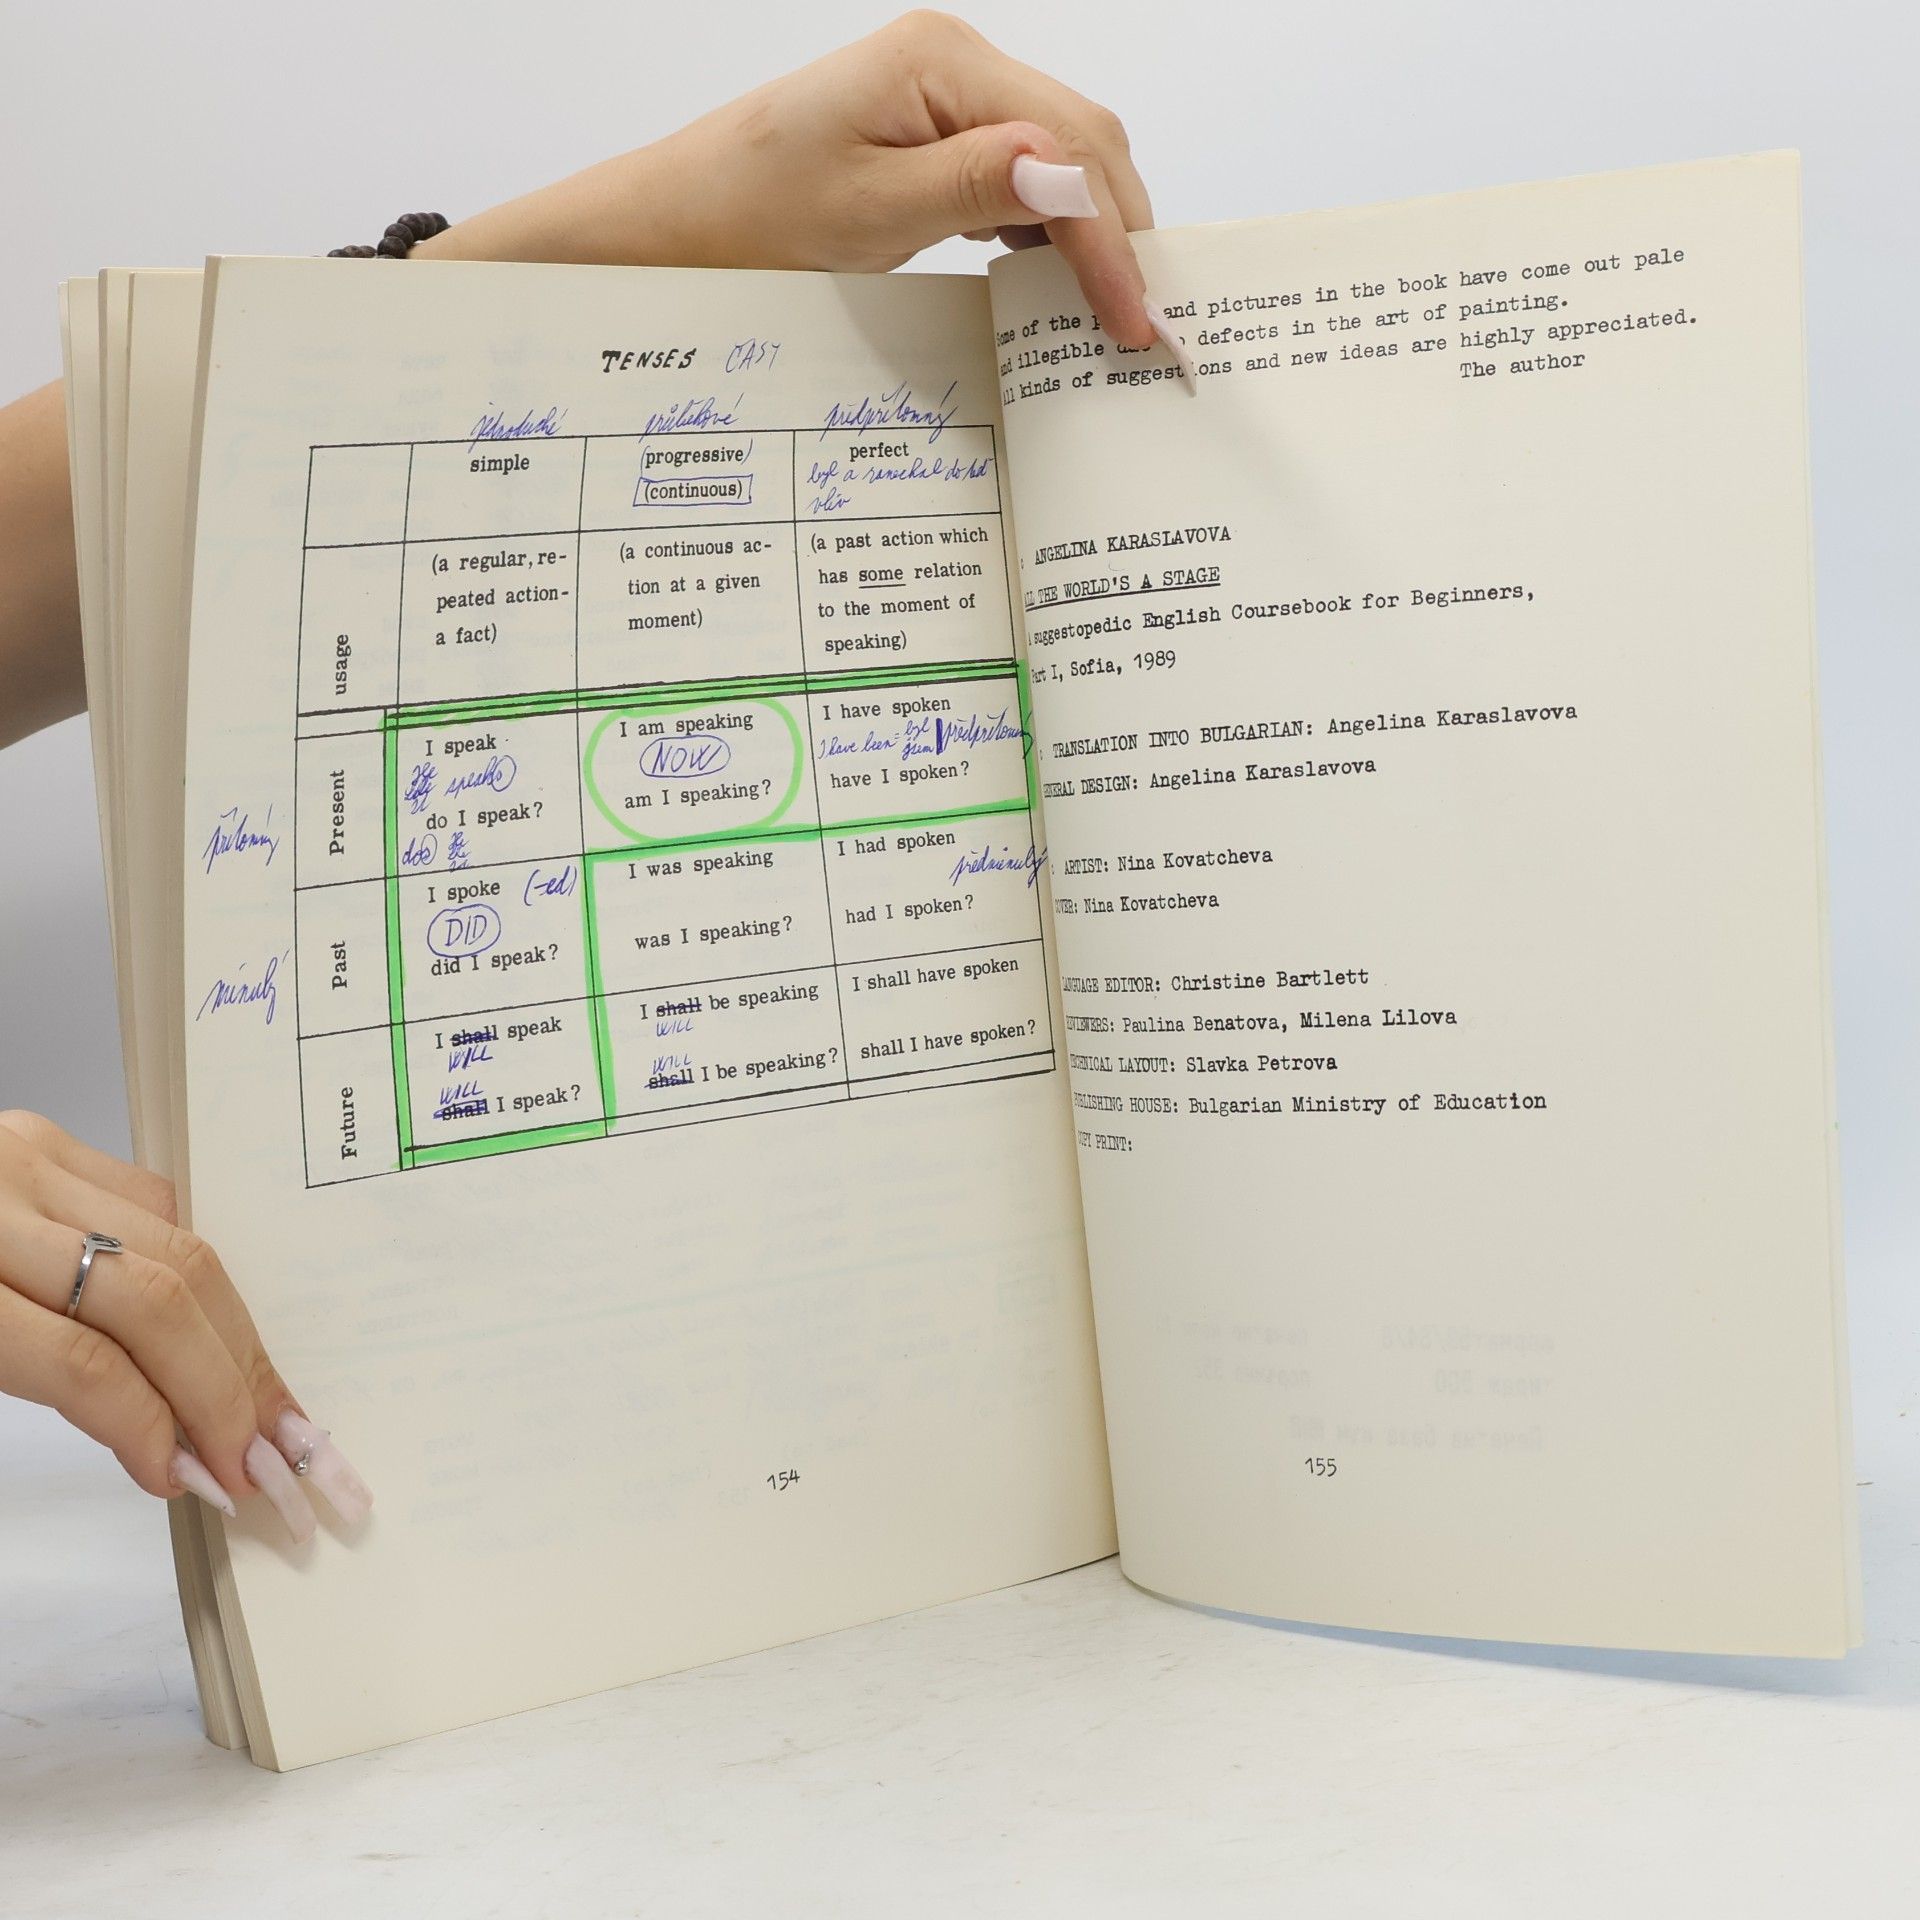 TENSES ČASY
jednoduché průběhové předpřítomný
simple (progressive) perfect
(continuous) byl a zanechal do teď
vliv
usage
(a regular, re-
peated action-
a fact)
(a continuous ac-
tion at a given
moment)
(a past action which
has some relation
to the moment of
speaking)
přítomný
Present
I speak
He
She
It speaks
do I speak?
does He
She
It
I am speaking
NOW
am I speaking?
I have spoken
I have been = byl jsem předpřítomný
have I spoken?
minulý
Past
I spoke (-ed)
DID
did I speak?
I was speaking
was I speaking?
I had spoken
předminulý
had I spoken?
Future
I shall speak
WILL
WILL
shall I speak?
I shall be speaking
WILL
WILL
shall I be speaking?
I shall have spoken
shall I have spoken?
154
Some of the and pictures in the book have come out pale
and illegible defects in the art of painting.
All kinds of suggestions and new ideas are highly appreciated.
The author
ANGELINA KARASLAVOVA
ALL THE WORLD'S A STAGE
A suggestopedic English Coursebook for Beginners,
Part I, Sofia, 1989
TRANSLATION INTO BULGARIAN: Angelina Karaslavova
GENERAL DESIGN: Angelina Karaslavova
ARTIST: Nina Kovatcheva
COVER: Nina Kovatcheva
LANGUAGE EDITOR: Christine Bartlett
REVIEWERS: Paulina Benatova, Milena Lilova
TECHNICAL LAYOUT: Slavka Petrova
PUBLISHING HOUSE: Bulgarian Ministry of Education
COPY PRINT:
155